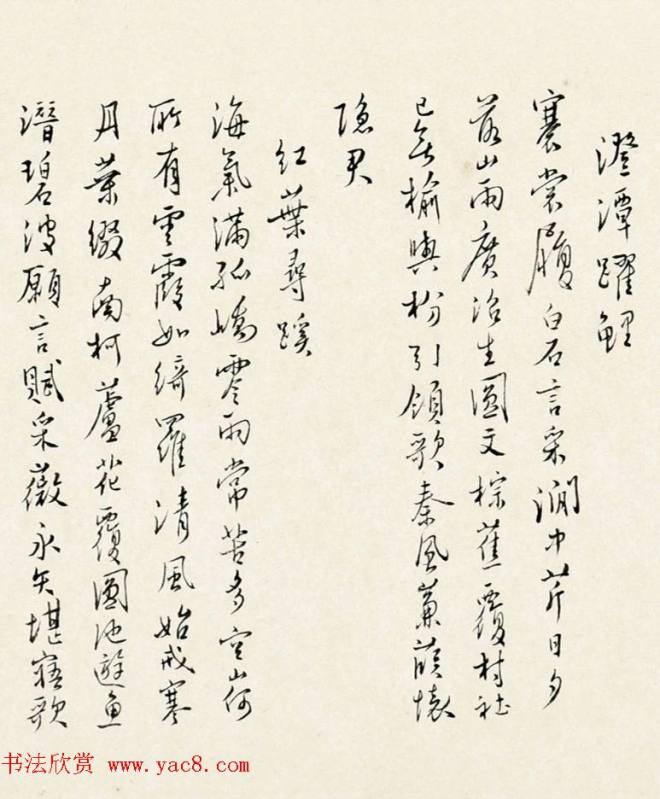 澄潭躍鯉
褰裳履白石言采澗中芹日夕
落山雨廣沼生圓文棕蕉覆村社
已無榆與枌引領歌秦風蒹葭懷
隐君
紅葉尋蹊
海氣滿孤嶠零雨常苦多空山何
所有雲霞如綺羅清風始戒寒
丹葉綴南柯蘆花覆園池遊魚
潛碧波願言賦采薇永矢堪寤歌
书法欣赏 www.yac8.com